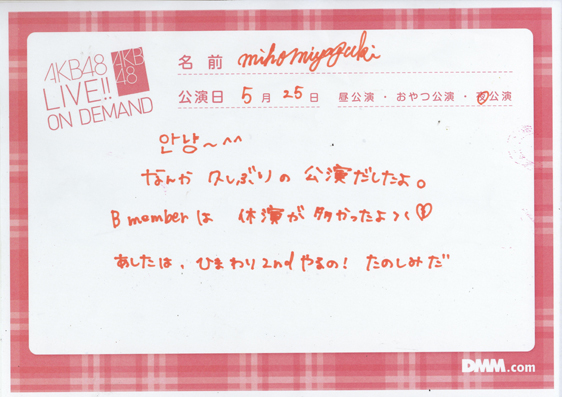 AKB48
LIVE!!
ON DEMAND
AKB
48
名前 mihomiyazaki
公演日 5月25日 昼公演・おやつ公演・夜公演
안냥～^^
なんか 久しぶりの 公演だしたよ。
B memberは 休演が多かったよ><♡
あしたは、ひまわり2ndやるの! たのしみだ
DMM.com